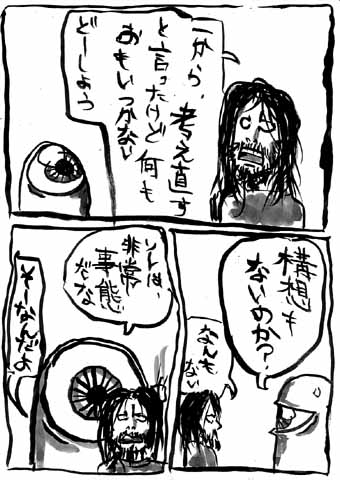 一から、考え直す
と言ったけど何も
おもいつかない
どーしよう
構想も
ないのか?
なんも
ない
ソレは、
非常
事態
だな
そーなんだよ